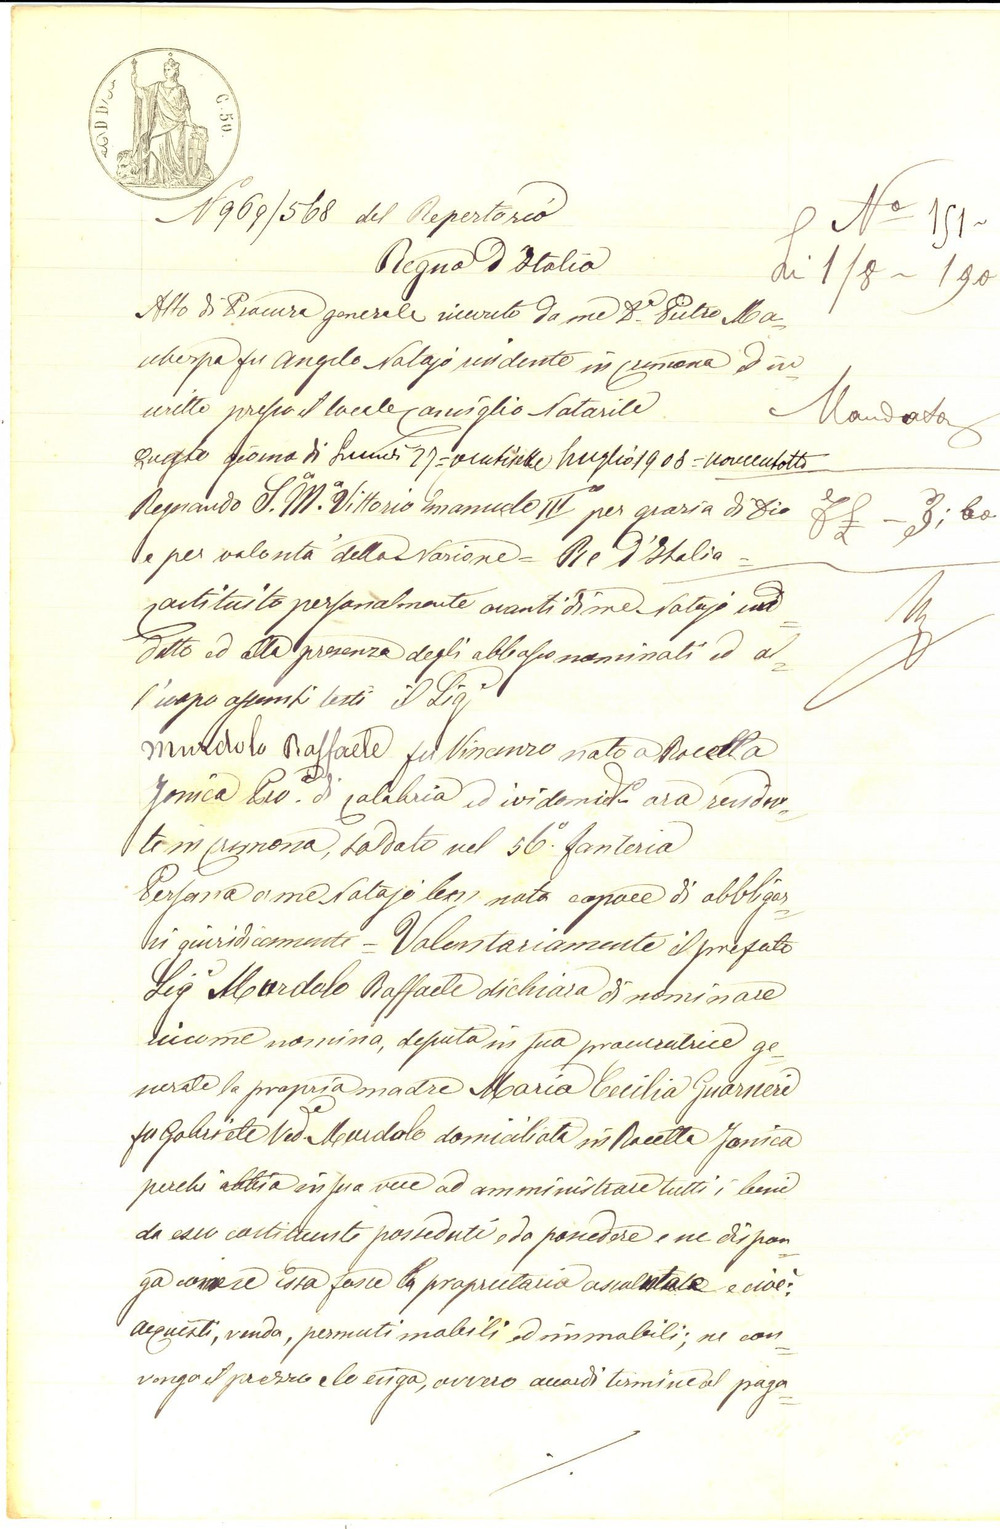 C. 50.
N° 969/568 del Repertorio
N° 151-
Regno d'Italia
li 1/8 - 190
Atto di Procura generale ricevuto da me D.r Pietro Ma=
fu Angelo Notajo residente in Cremona ed in=
scritto presso il locale Consiglio Notarile
Mandato
Questo giorno di Lunedì 27 = ventisette Luglio 1908 = novecentotto
Regnando S.a M.a Vittorio Emanuele III° per grazia di Dio
- 3; 60
e per volontà della Nazione = Re d'Italia =
Costituito personalmente avanti di me Notajo sud=
detto ed alla presenza degli abbasso nominati ed al=
l'uopo assunti testi il Sig.r
Murdolo Raffaele fu Vincenzo nato a Rocella
Jonica Prov.a di Calabria ed ivi domic.to ora residen=
te in Cremona, soldato nel 56° fanteria
Persona a me Notajo ben nota capace di obbligar=
si giuridicamente = Volontariamente il prefato
Sig.r Murdolo Raffaele dichiara di nominare
siccome nomina, deputa in sua procuratrice ge=
nerale la propria madre Maria Cecilia Guarneri
fu Gabriele Ved.a Murdolo domiciliata in Rocella Jonica
perchè abbia in sua vece ad amministrare tutti i beni
da esso costituente posseduti e da possedere e ne dispon=
ga come se essa fosse la proprietaria assoluta e cioè:
Acquisti, venda, permuti mobili ed immobili; ne con=
venga il prezzo e lo esiga, ovvero accordi termine al paga=